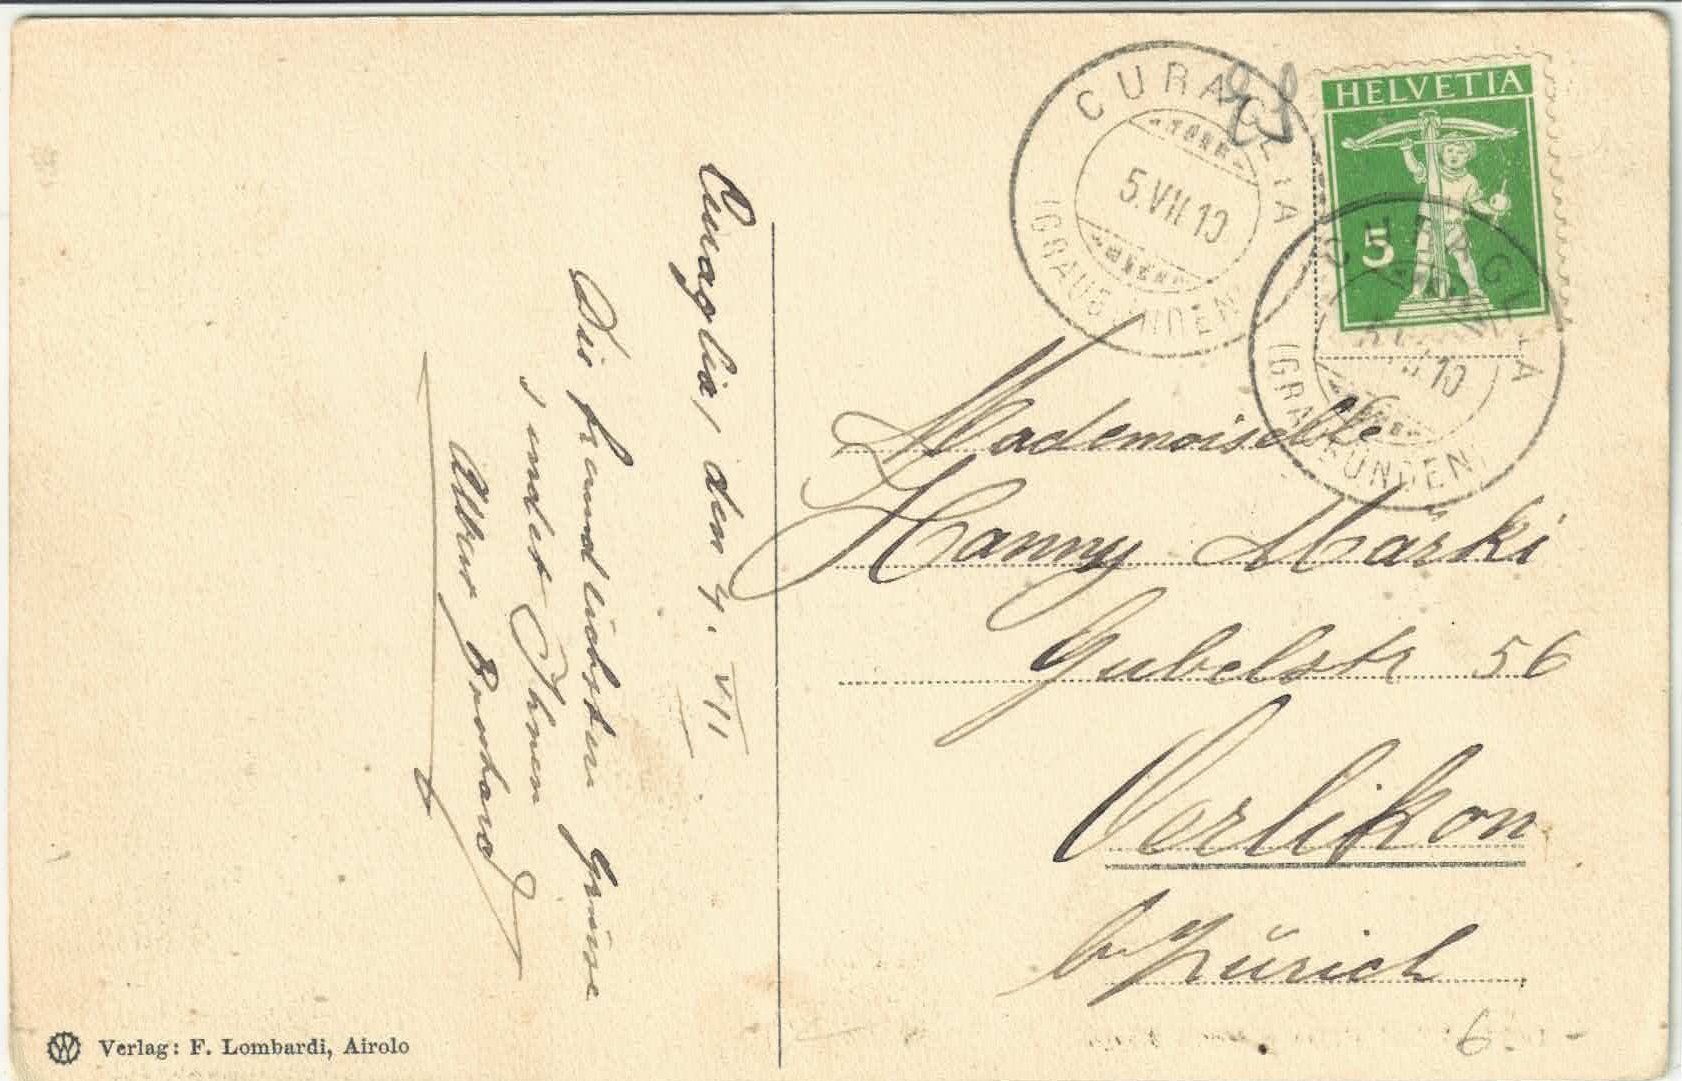 Curaglia, den 4. VII
Die freundlichsten Grüsse
sendet Ihnen
Albert
CURAGLIA
5.VII.10
(GRAUBÜNDEN)
HELVETIA
5
CURAGLIA
10
(GRAUBÜNDEN)
Mademoiselle
Hanny Märki
Gubelstr 56
Oerlikon
b/Zürich
6
W Verlag: F. Lombardi, Airolo